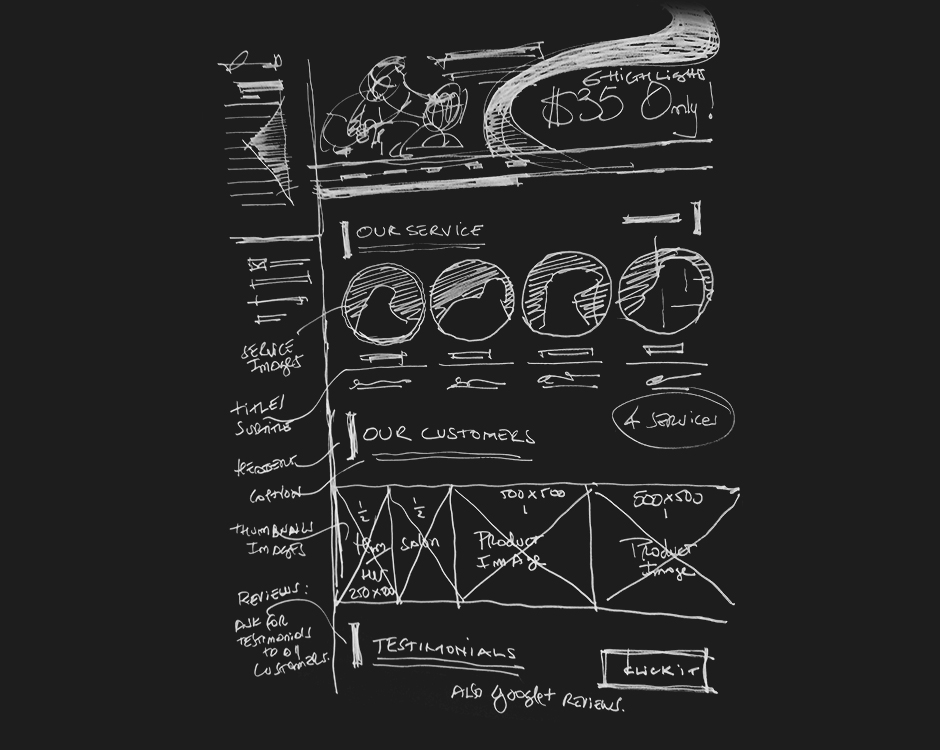 6 HIGHLIGHTS
$35 Only!
OUR SERVICE
SERVICE
IMAGES
TITLE/
SUBTITLE
4 SERVICES
OUR CUSTOMERS
CAPTION
THUMBNAILS
IMAGES
1/2
1/2
500x500
500x500
SALON
Product
Image
Product
Image
250x500
REVIEWS:
ASK FOR
TESTIMONIALS
TO
CUSTOMERS.
TESTIMONIALS
CLICK IT
ALSO google+ REVIEWS.